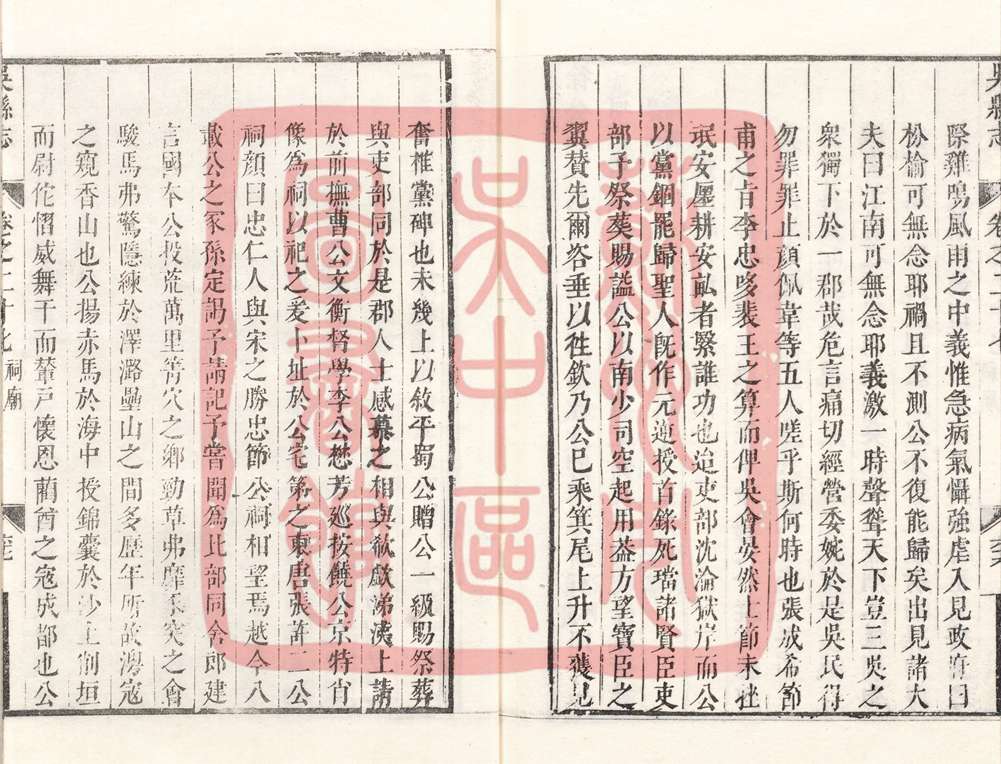 吳縣志 卷之二十七
際雞鳴風雨之中義惟急病氣懾強虐入見政府曰
枌榆可無念耶禍且不測公不復能歸矣出見諸大
夫曰江南可無念耶義激一時聲聳天下豈三吳之
衆獨下於一郡哉危言痛切經營委婉於是吳民得
勿罪罪止顏佩韋等五人嗟乎斯何時也張成希節
甫之旨李忠哆裴王之算而俾吳會晏然士節未挫
氓安廛耕安畝者緊誰功也迨吏部沈淪獄岸而公
以黨錮罷歸聖人旣作元兇授首錄死璫諸賢臣吏
部予祭葬賜諡公以南少司空起用葢方望寶臣之
翼贊先爾咨垂以徃欽乃公已乘箕尾上升不獲見
奮椎黨碑也未幾上以敘平蜀公贈公一級賜祭葬
與吏部同於是郡人士感慕之相與欷歔涕洟上請
於前撫曹公文衡督學李公懋芳廵按饒公京特肖
像爲祠以祀之爰卜址於公宅第之東唐張許二公
祠顏曰忠仁人與宋之勝忠節 公祠相望焉越今八
載公之冢孫定謁予請記予嘗聞爲比部同舍郎建
言國本公投荒萬里菁穴之鄉勁草弗靡豕突之會
駿馬弗驚隱練於澤潞壘山之間多歷年所故鴻寇
之窺香山也公揚赤馬於海中授錦囊於沙上削垣
而尉佗慴威舞干而輦戶懷恩藺酋之寇成都也公
吳縣志 卷之二十七 祠廟
蘇州
吳中區
圖書館